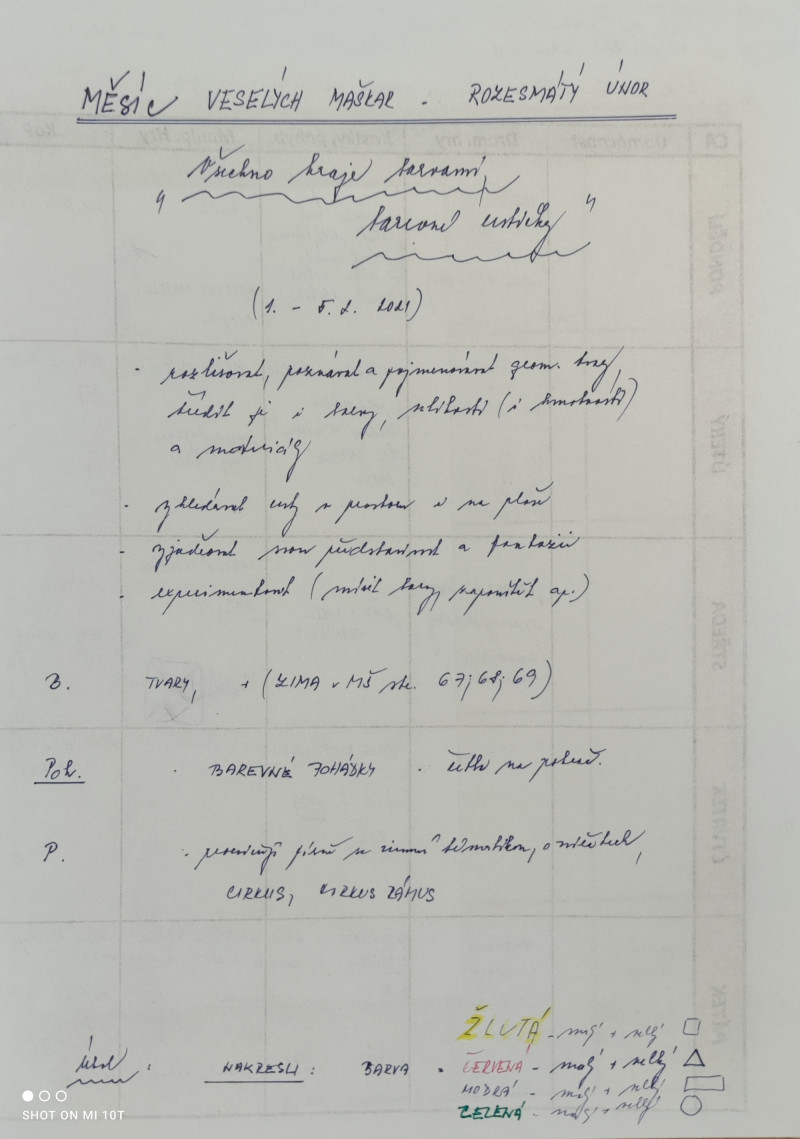 MĚSÍC VESELÝCH MAŠKAR - ROZESMÁTÝ ÚNOR
„Všechno hraje barvami,
barevné “
(1. - 5. 2. 2021)
- rozlišovat, poznávat a pojmenovávat geom. tvary,
třídit je i barvy, velikosti (i hmotnosti)
a materiály
- vyhledávat cesty v prostoru i na ploše
- vyjadřovat svou představivost a fantazii
- experimentovat (mísit barvy, napouštět ap.)
B. TVARY, + (ZIMA v MŠ str. 67; 68; 69)
Poh. - BAREVNÉ POHÁDKY - četba na pokrač.
P. - písně se zimní tématikou, o
CIRKUS, CIRKUS
Úkol: NAKRESLI: BARVA - ŽLUTÁ - malý + velký
ČERVENÁ - malý + velký
MODRÁ - malý + velký
ZELENÁ - malý + velký
SHOT ON MI 10T